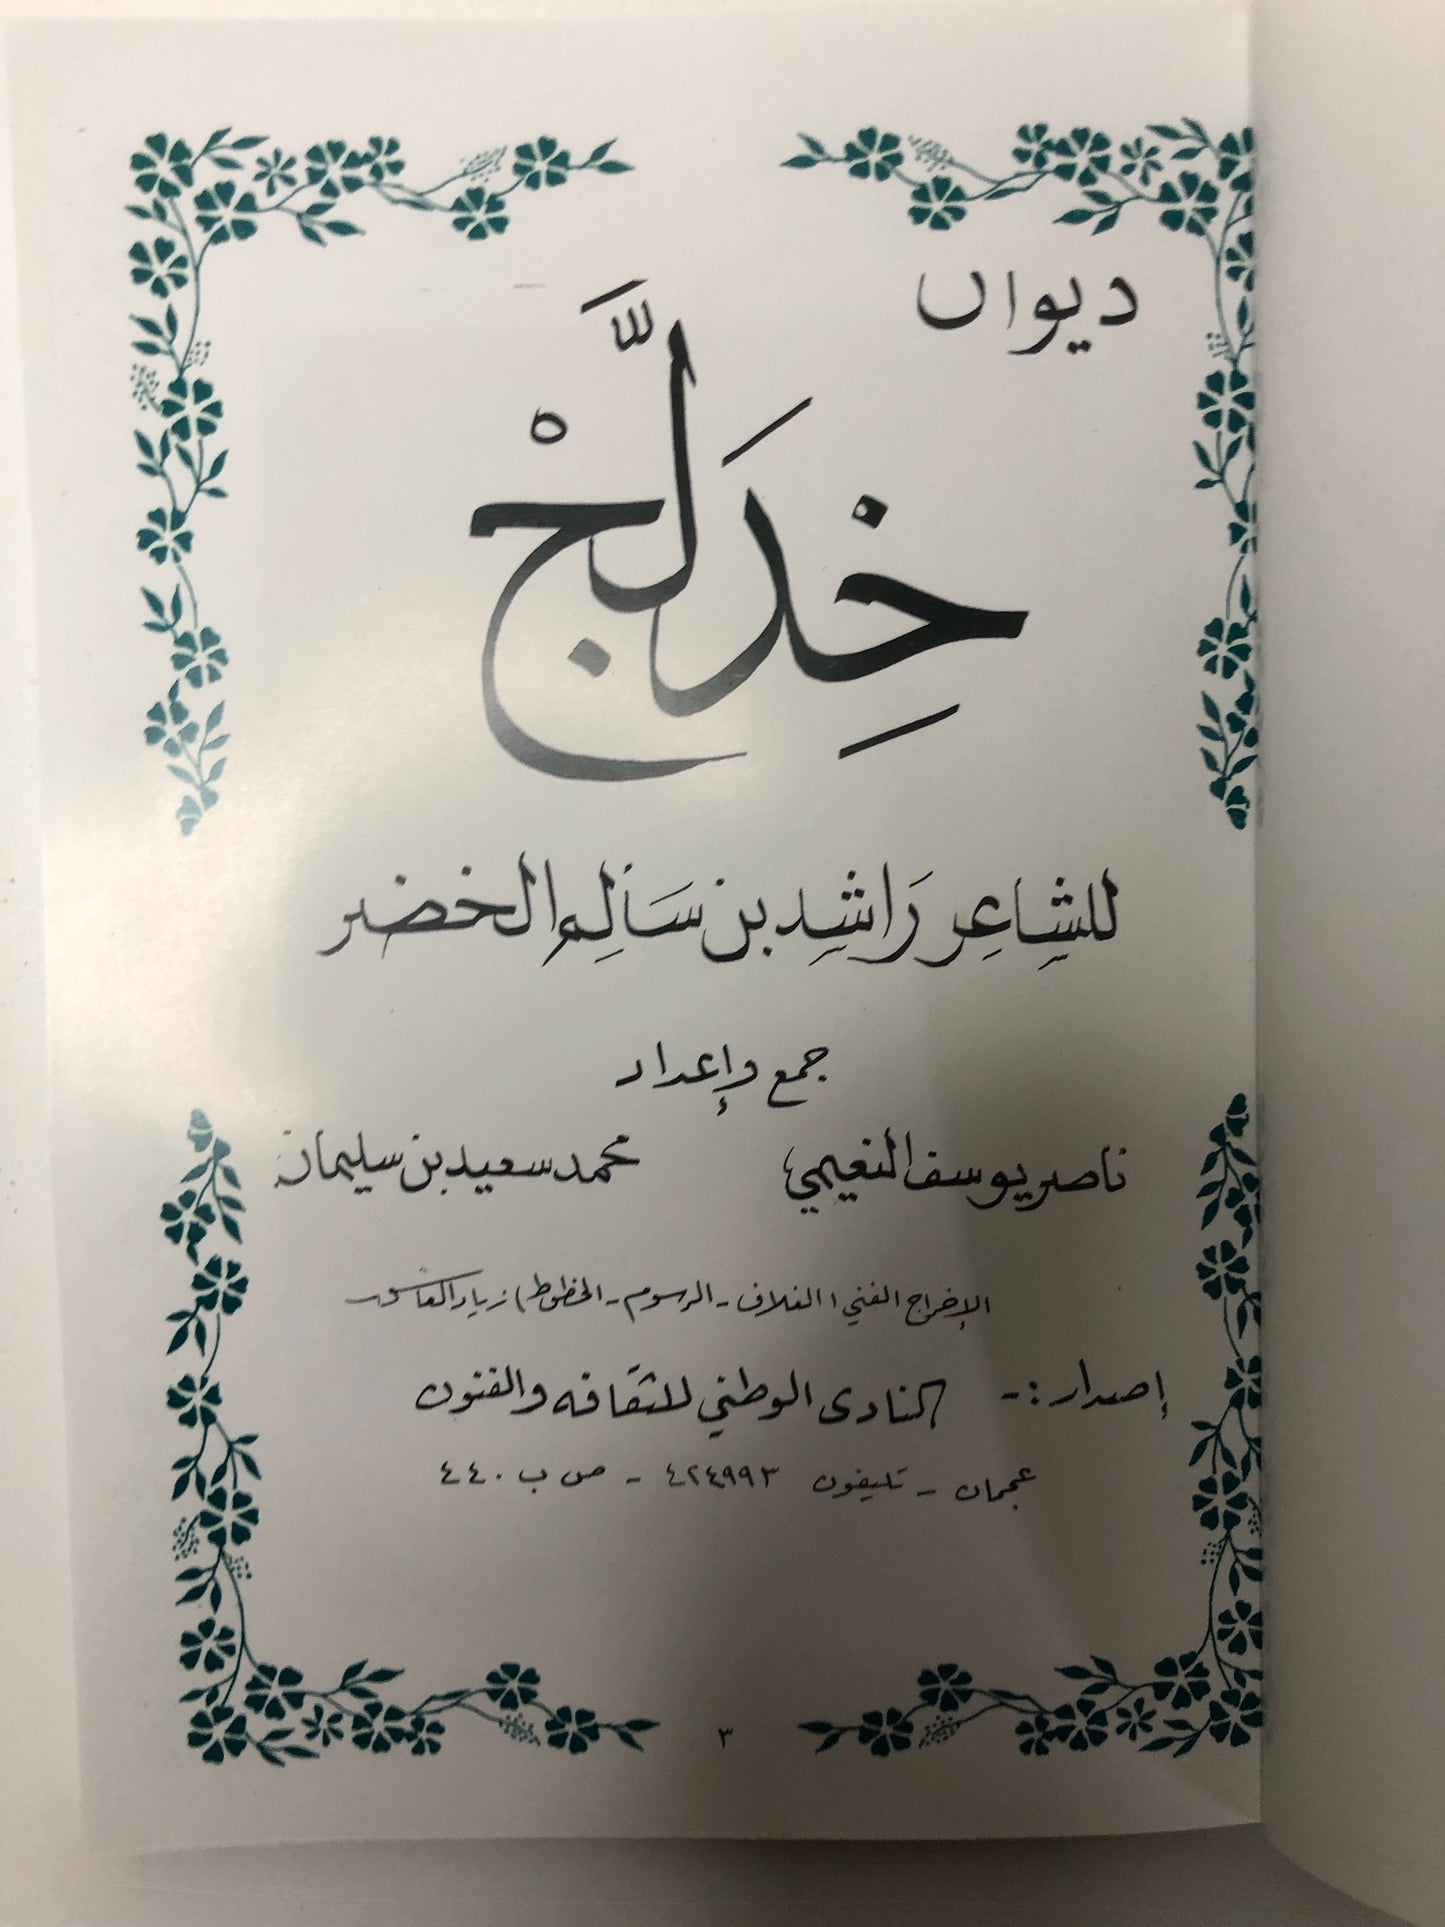 ديوان
خِدَلَّجْ
للشاعِر رَاشِد بن سَالِم الخضر
جمع وإعداد
ناصر يوسف النعيمي محمد سعيد بن سليمان
الإخراج الفني (الغلاف - الرسوم - الخطوط) زياد
إصدار :- النادى الوطني للثقافه والفنون
عجمان - تليفون ٤٢٤٩٩٣ - ص ب ٤٤٠
٣